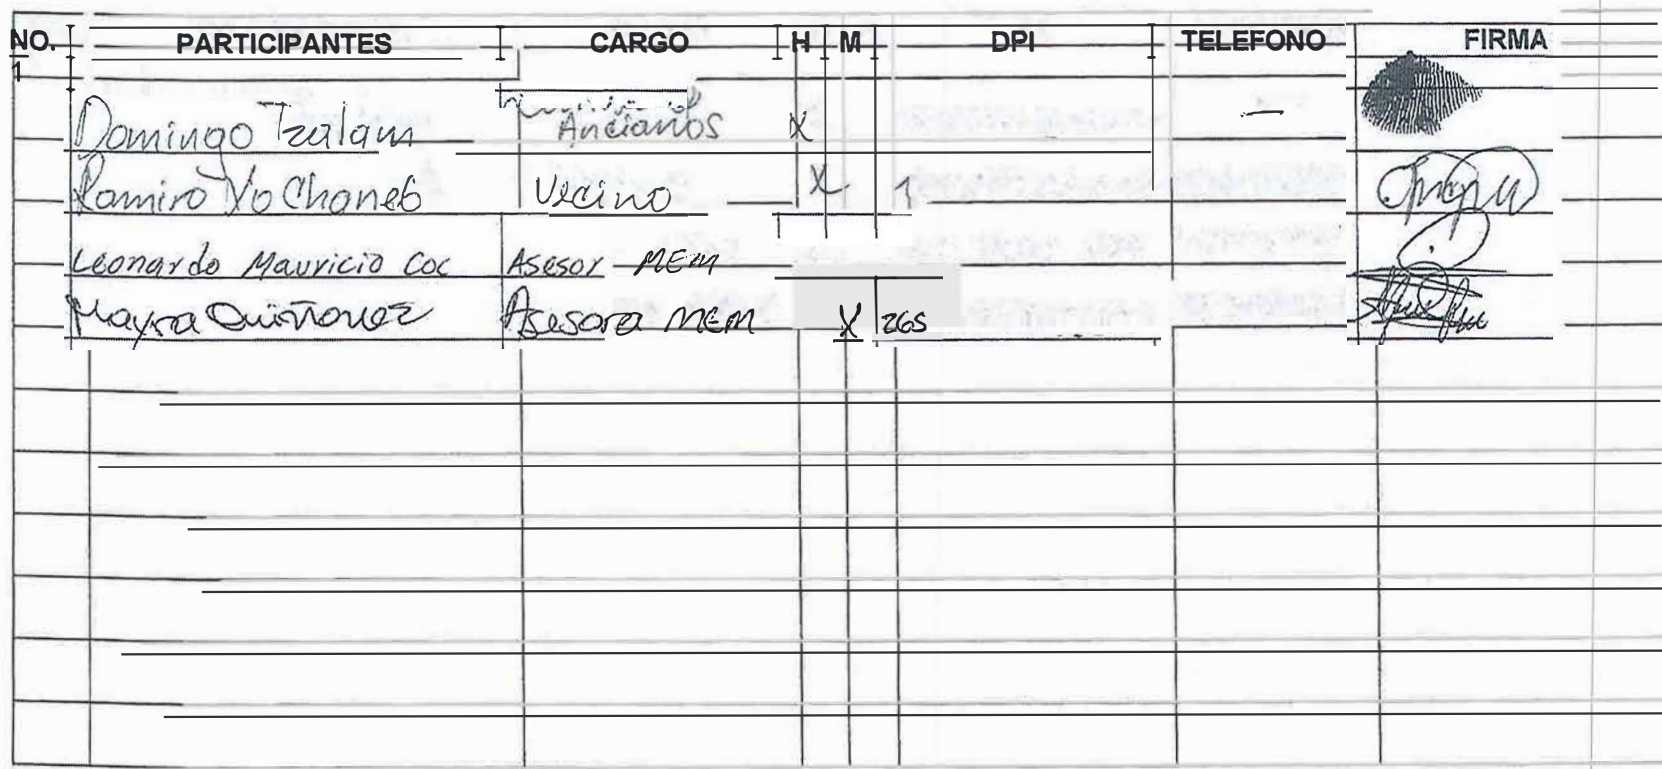 NO. PARTICIPANTES CARGO H M DPI TELEFONO FIRMA
1
Domingo Tzalam Ancianos X —
Ramiro Yo Chaneb Vecino X 1
Leonardo Mauricio Coc Asesor MEM
Mayra Quiñonez Asesora MEM X 265